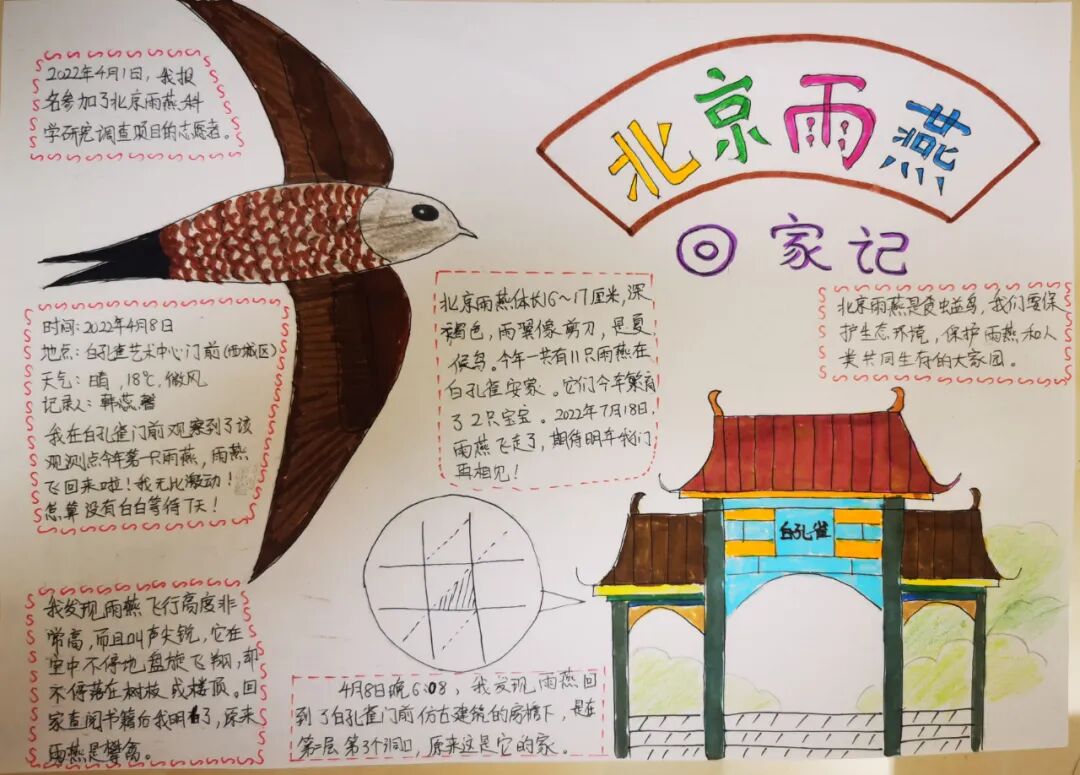 北京雨燕
回家记
2022年4月1日，我报
名参加了北京雨燕科
学研究调查项目的志愿者。
时间：2022年4月8日
地点：白孔雀艺术中心门前(西城区)
天气：晴，18℃，微风
记录人：韩蕊馨
我在白孔雀门前观察到了该
观测点今年第一只雨燕，雨燕
飞回来啦！我无比激动！
怎算没有白白等待7天！
我发现雨燕飞行高度非
常高，而且叫声尖锐，它在
空中不停地盘旋飞翔，却
不停落在树枝或楼顶。回
家查阅书籍后我明白了，原来
雨燕是攀禽。
北京雨燕体长16～17厘米，深
褐色，两翼像剪刀，是夏
候鸟。今年一共有11只雨燕在
白孔雀安家。它们今年繁育
了2只宝宝。2022年7月18日，
雨燕飞走了，期待明年我们
再相见！
4月8日晚6:08，我发现雨燕回
到了白孔雀门前仿古建筑的房檐下，是在
第二层第3个洞口，原来这是它的家。
北京雨燕是食虫益鸟，我们要保
护生态环境，保护雨燕和人
类共同生存的大家园。
白孔雀